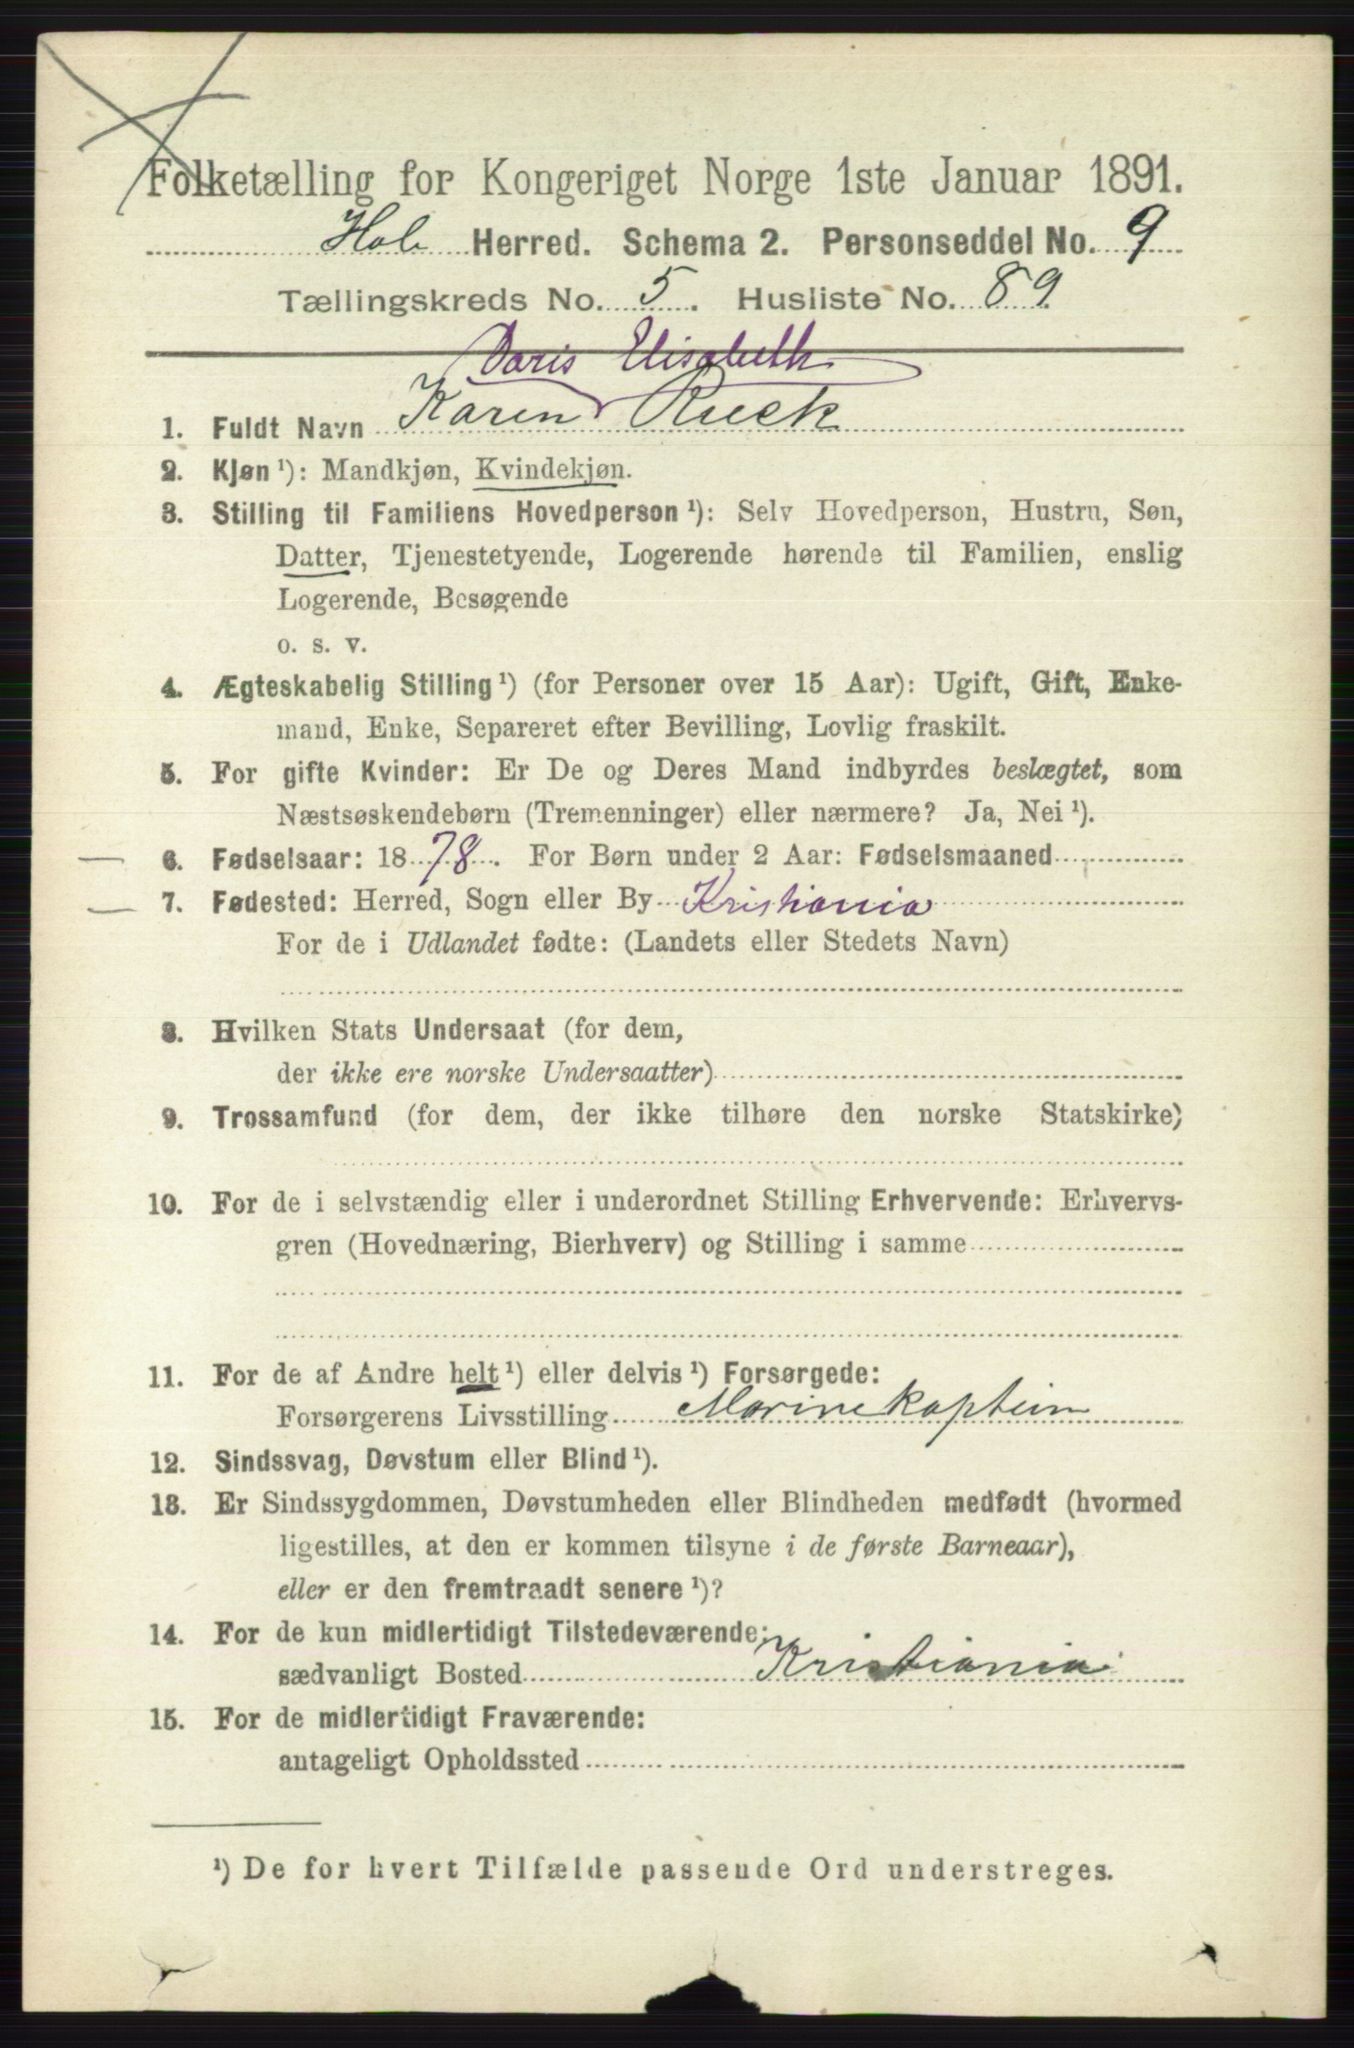 Folketælling for Kongeriget Norge 1ste Januar 1891.
Hole Herred. Schema 2. Personseddel No. 9
Tællingskreds No. 5. Husliste No. 89
Doris Elisabeth
1. Fuldt Navn Karen Rieck
2. Kjøn ¹): Mandkjøn, Kvindekjøn.
3. Stilling til Familiens Hovedperson ¹): Selv Hovedperson, Hustru, Søn,
Datter, Tjenestetyende, Logerende hørende til Familien, enslig
Logerende, Besøgende
o. s. v.
4. Ægteskabelig Stilling ¹) (for Personer over 15 Aar): Ugift, Gift, Enke-
mand, Enke, Separeret efter Bevilling, Lovlig fraskilt.
5. For gifte Kvinder: Er De og Deres Mand indbyrdes beslægtet, som
Næstsøskendebørn (Tremenninger) eller nærmere? Ja, Nei ¹).
6. Fødselsaar: 1878. For Børn under 2 Aar: Fødselsmaaned
7. Fødested: Herred, Sogn eller By Kristiania
For de i Udlandet fødte: (Landets eller Stedets Navn)
8. Hvilken Stats Undersaat (for dem,
der ikke ere norske Undersaatter)
9. Trossamfund (for dem, der ikke tilhøre den norske Statskirke)
10. For de i selvstændig eller i underordnet Stilling Erhvervende: Erhvervs-
gren (Hovednæring, Bierhverv) og Stilling i samme
11. For de af Andre helt ¹) eller delvis ¹) Forsørgede:
Forsørgerens Livsstilling Marinekaptein
12. Sindssvag, Døvstum eller Blind ¹).
13. Er Sindssygdommen, Døvstumheden eller Blindheden medfødt (hvormed
ligestilles, at den er kommen tilsyne i de første Barneaar),
eller er den fremtraadt senere ¹)?
14. For de kun midlertidigt Tilstedeværende:
sædvanligt Bosted Kristiania
15. For de midlertidigt Fraværende:
antageligt Opholdssted
¹) De for hvert Tilfælde passende Ord understreges.